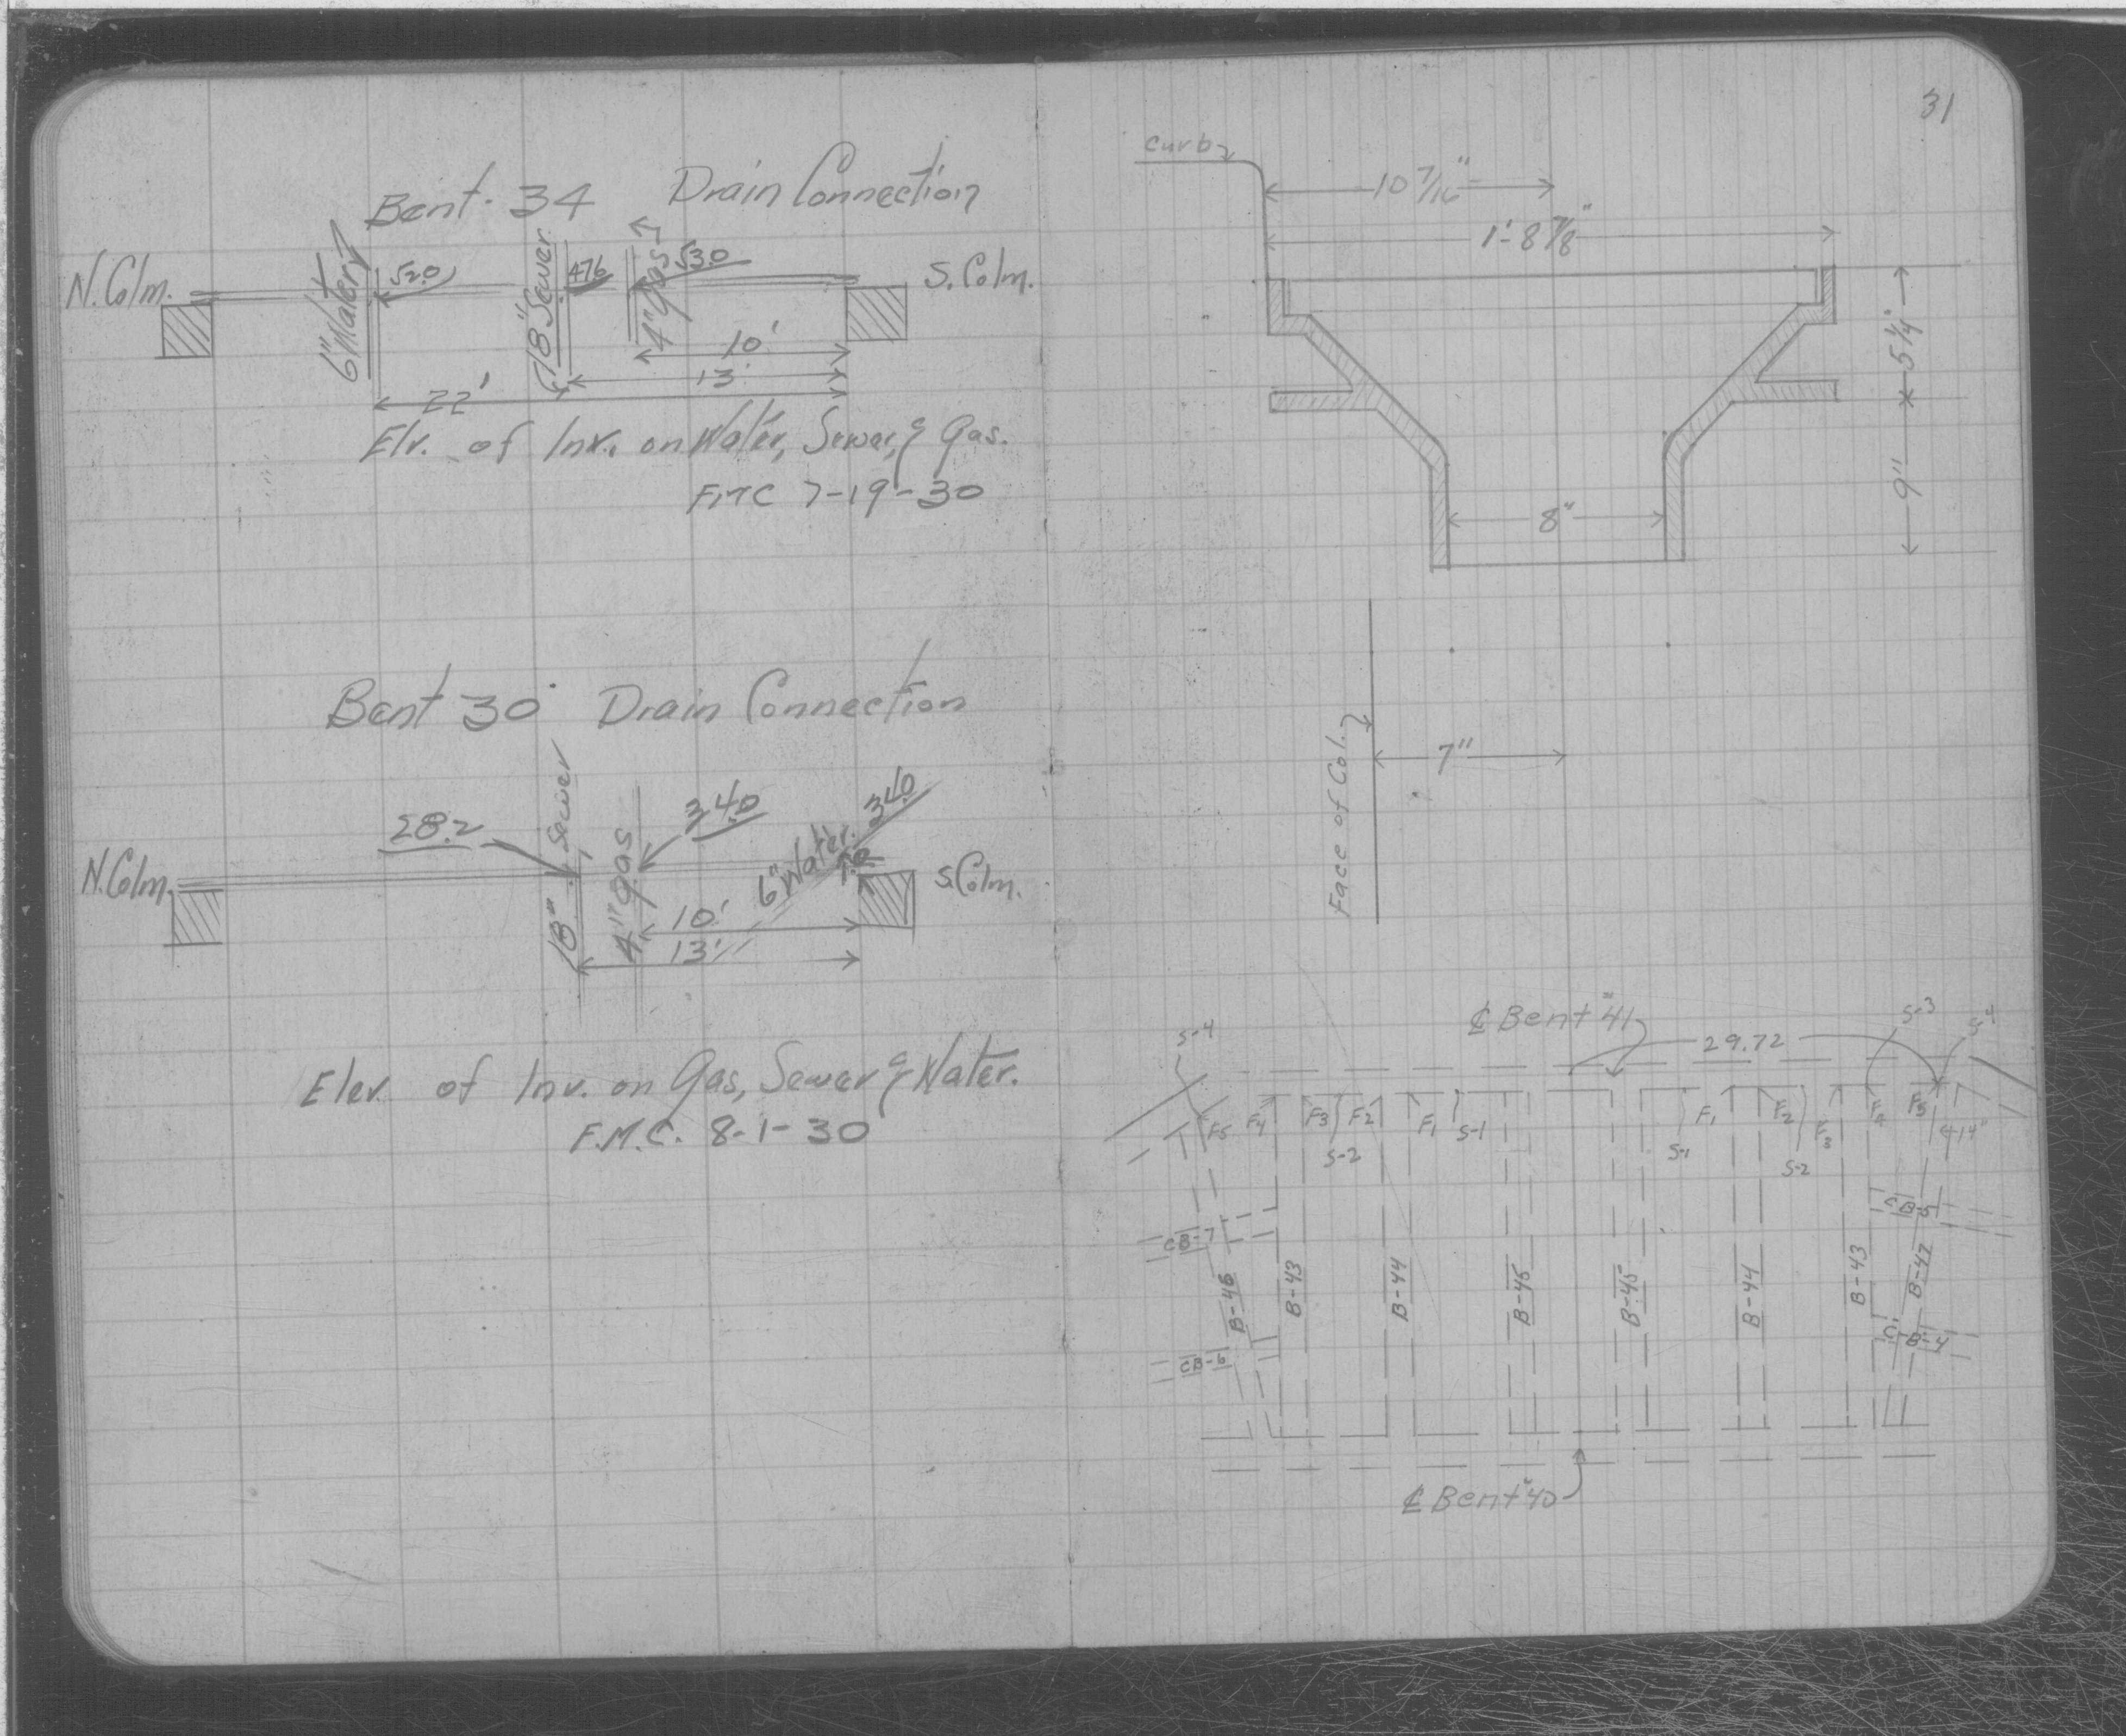 31
Bent. 34 Drain Connection
N. Colm.
6" Water
520
18" Sewer
476
4" Gas
530
S. Colm.
10'
13'
22'
Elv. of Inv. on Water, Sewer, & Gas.
FMC 7-19-30
Bent 30 Drain Connection
N. Colm.
282
18" Sewer
4" gas
340
6" Water.
340
S. Colm.
10'
13'
Elev. of Inv. on Gas, Sewer & Water.
F.M.C. 8-1-30
curb
10 7/16"
1'-8 7/8"
5 1/4"
9"
8"
Face of Col.
7"
℄ Bent #41
29.72
S-4
S-3
S-4
F5
F4
F3
F2
F1
S-1
S-2
F1
F2
F3
F4
F5
S-1
S-2
CB-7
CB-5
B-46
B-43
B-44
B-45
B-45
B-44
B-43
B-47
CB-6
C-B-4
℄ Bent #40